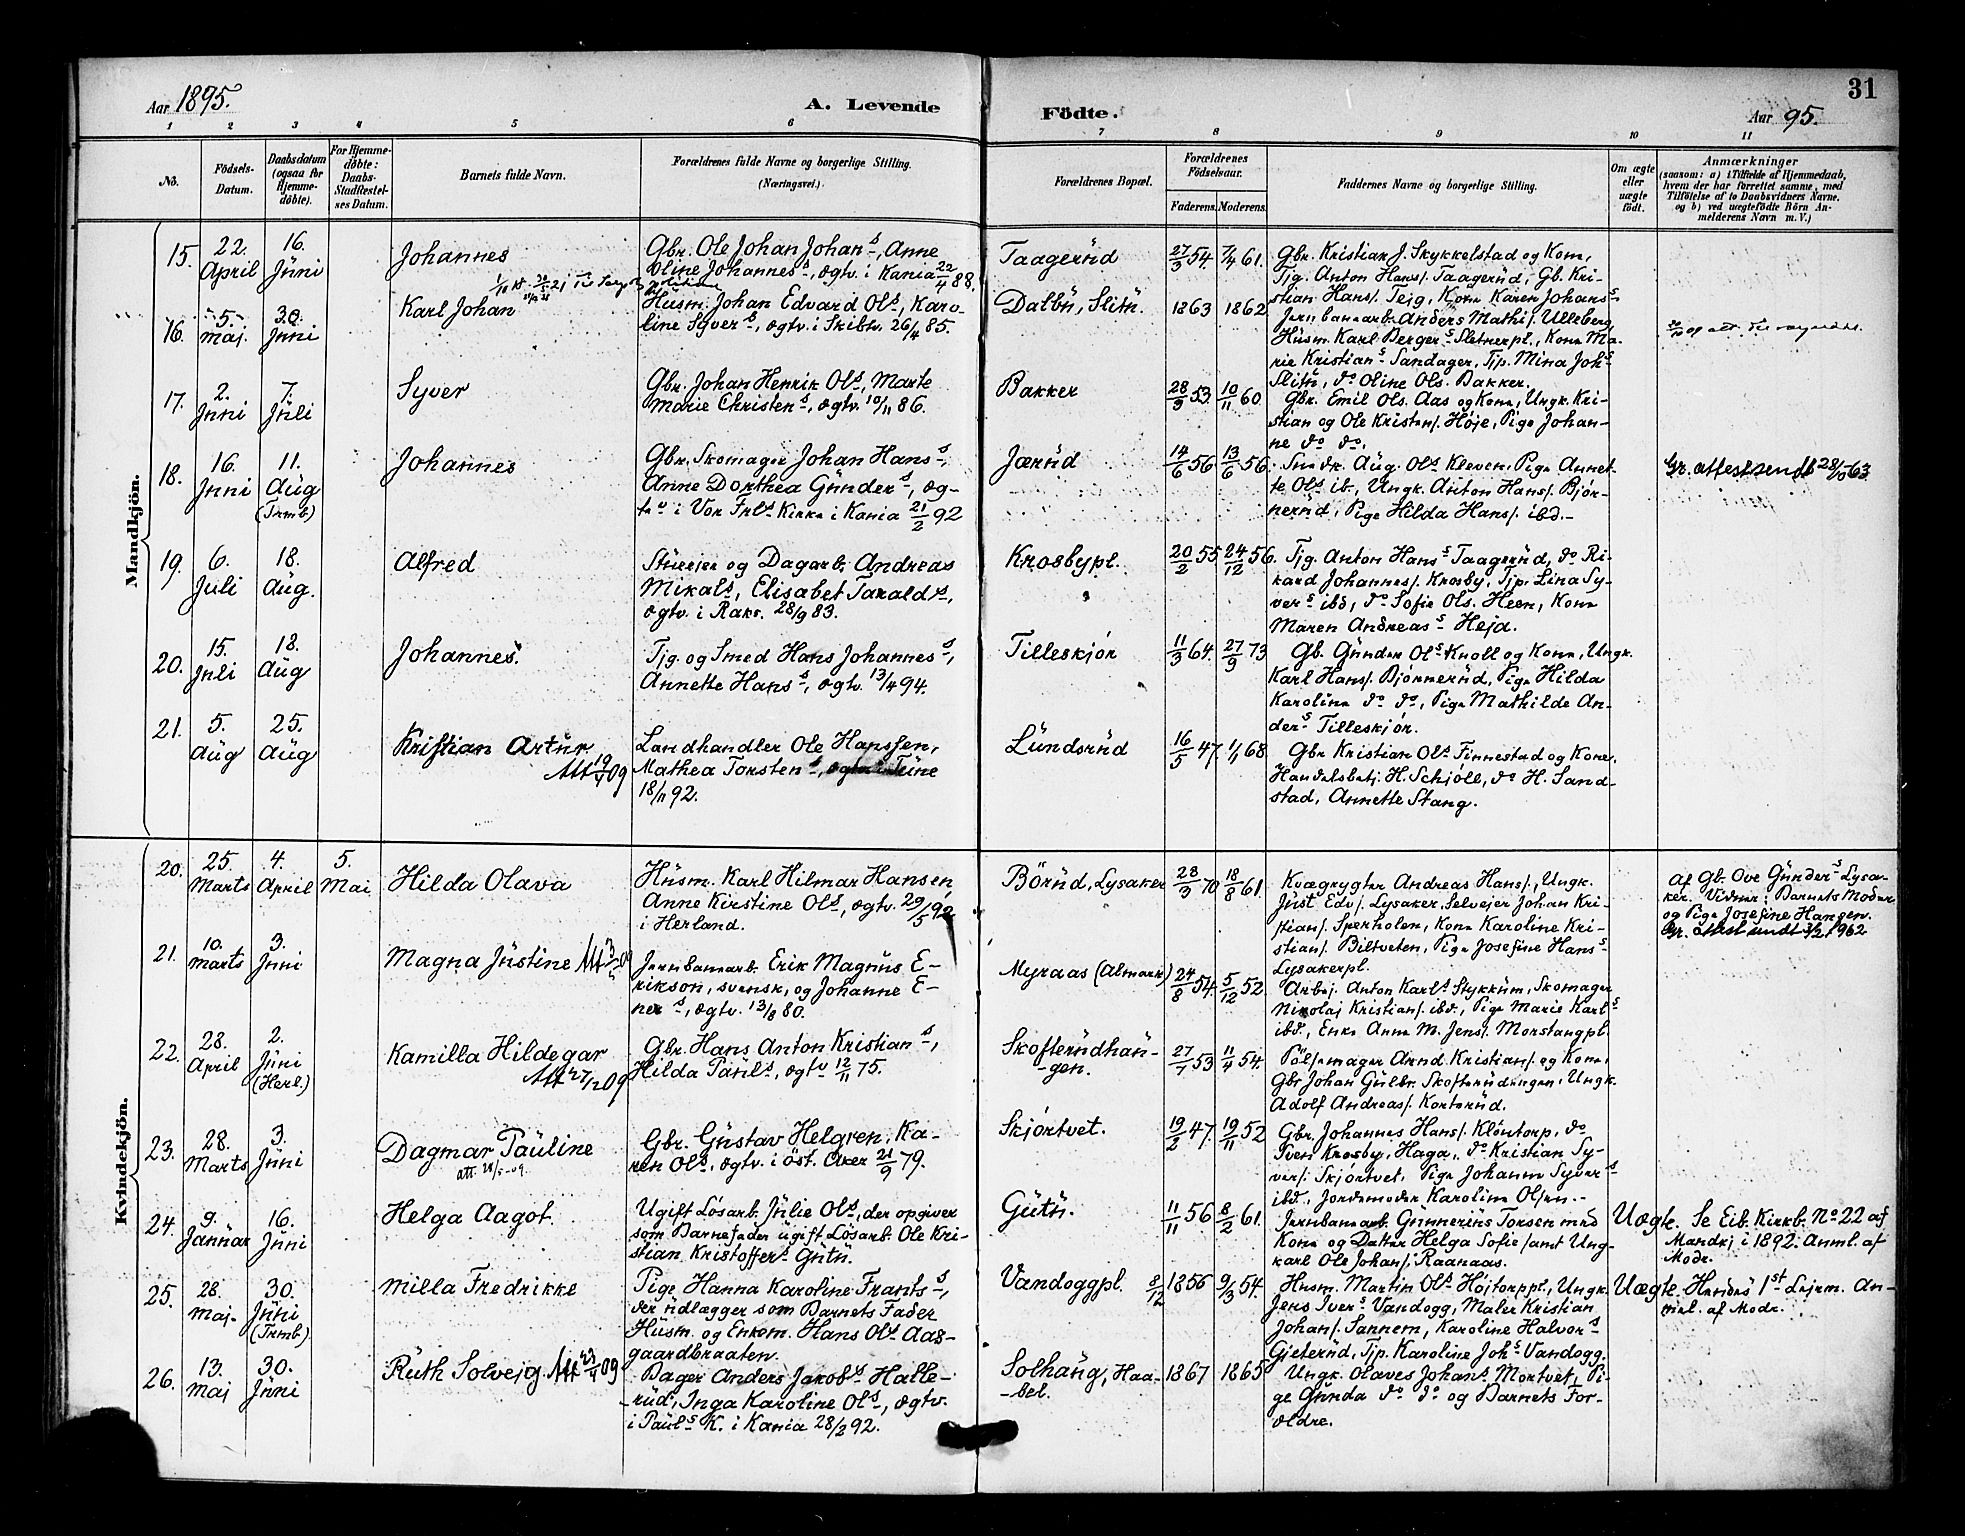 31
Aar 1895.
A. Levende
Födte.
Aar 95.
1 2 3 4 5 6 7 8 9 10 11
No.
Födsels-
Datum.
Daabsdatum
(ogsaa for
Hjemme-
döbte).
For Hjemme-
döbte:
Daabs-
Stadfestel-
ses Datum.
Barnets fulde Navn.
Forældrenes fulde Navne og borgerlige Stilling.
(Næringsvei.)
Forældrenes Bopæl.
Forældrenes
Födselsaar.
Faderens. Moderens.
Faddernes Navne og borgerlige Stilling.
Om ægte
eller
uægte
födt.
Anmærkninger
(saasom: a) i Tilfælde af Hjemmedaab,
hvem der har forrettet samme, med
Tilföielse af to Daabsvidners Navne.
og b) ved uægtefödte Börn An-
melderens Navn m. V.)
Mandkjön.
15.
22.
April
16.
Jüni
Johannes
Gbr. Ole Johan Johans, Anne
Oline Johanness, ægtv. i Kania 22/4 88.
Taagerüd
27/3 54. 7/4 61.
Gbr. Kristian J. Skykkelstad og Kone,
Tjg. Anton Hans/. Taagerüd, Gb. Kri-
stian Hans/. Tejg, Kone Karen Johans
16.
5.
Maj.
30.
Jüni
Karl Johan
Hüsm. Johan Edvard Ols, Karo-
line Syvers, ægtv. i Skibtv. 26/4 85.
Dalbü, Slitü.
1863 1862
Jernbanearb. Anders Mathis/. Ulleberg,
Hüsm. Karl Bergers Sletnerpl., Kone Ma-
rie Kristians Sandager, Tjp. Mina Johs
Slitü, do Oline Ols. Bakker.
17.
2.
Jüni
7.
Jüli
Syver
Gbr. Johan Henrik Ols, Marte
Marie Christens, ægtv. 10/11 86.
Bakker
28/9 53. 10/11 60
Gbr. Emil Ols. Aas og Kone, Ungk. Kri-
stian og Ole Kristens/. Høje, Pige Johan-
ne do do.
18.
16.
Jüni
11.
Aüg
(Trmb)
Johannes
Gbr. Skomager Johan Hans,
Anne Dorthea Günders, æg-
tv i Vor Frls Kirke i Kania 21/2 92
Jærüd
14/6 56 13/6 56.
Snedk. Aüg. Ols Kleven, Pige Annet-
te Ols ib., Ungk. Anton Hans/. Bjør-
nerüd, Pige Hilda Hans/. ibd.
Gr. attest sendt 28/10-63.
19.
6.
Juli
18.
Aüg.
Alfred
Stüeejer og Dagarb. Andreas
Mikals, Elisabet Taralds,
ægtv. i Raks. 28/9 83.
Krosbypl.
20/2 55 24/12 56.
Tjg. Anton Hans Taagerüd, do Ri-
kard Johannes/. Krosby, Tjp. Lina Sy-
vers ibd, do Sofie Ols. Heen, Kone
Maren Andreas Hejd.
20.
15.
Juli
18.
Aüg
Johannes.
Tjg. og Smed Hans Johannes,
Annette Hans, ægtv. 13/4 94.
Tilleskjør
11/3 64. 27/9 73
Gb. Günder Ols Knoll og Kone, Ungk.
Karl Hans/. Bjønnerüd, Pige Hilda
Karolina do do, Pige Mathilde An-
ders Tilleskjør.
21.
5.
Aüg
25.
Aüg
Kristian Artür
Landhandler Ole Hanssen,
Mathea Torstens, ægtv. i Tüne
18/11 92.
Lündsrüd
16/5 47. 1/1 68.
Gbr Kristian Ols Finnestad og Kone,
Handelsbetj. H. Schjöll, do H. Sand-
stad, Annette Stang.
Kvindekjön.
20.
25.
Marts
4.
April
5.
Mai
Hilda Olava
Hüsm. Karl Hilmar Hansen,
Anne Kirstine Ols, ægtv. 29/5 92
i Herland.
Börüd, Lysaker
28/3 70 18/8 61.
Kvægrygter Andreas Hans/., Ungk.
Jüst Edv/. Lysaker, Selvejer Johan Kri-
stian/. Sperholen, Kone Karoline Kri-
stian/. Biltveten, Pige Josefine Hans
Lysakerpl.
Af Gb. Ove Günders Lysa-
ker. Vidner: Barnets Moder
og Pige Josefine Hansen.
Gr. attest sendt 3/2 1962
21.
10.
Marts
3.
Jüni
Magna Jüstine
Jernbanearb. Erik Magnüs E-
rikson, svensk, og Johanne E-
ners, ægtv. 13/8 80.
Myraas (Almark)
24/8 54. 5/12 52.
Arbej. Anton Karls Stykküm, Skomager
Nikolaj Kristian/. ibd., Pige Marie Karls
ibd., Enke Anne M. Jens/. Morstangpl.
22.
28.
April
2.
Jüni
(Herl.)
Kamilla Hildegar
Att 27/12 09
Gbr. Hans Anton Kristians,
Hilda Paüls, ægtv 12/11 75.
Skofterüdhän-
-gen.
27/7 53 11/4 54.
Pølsemager Arnd. Kristians/. og Kone,
Gbr Johan Gülbr. Skofterüdengen, Ungk.
Adolf Andreas/. Korterüd.
23.
28.
Marts
3.
Jüni
Dagmar Paüline
Gbr. Güstav Helgren, Ka-
ren Ols, ægtv. i Öst. Aker 21/9 79.
Skjørtvet.
19/2 47. 19/11 52
Gbr. Johannes Hans/. Kløntorp, do
Sven Krosby, Haga, do Kristian Sy-
vers/. Skjørtvet, Pige Johanne Syvers
ibd., Jordemoder Karoline Olsen.
24.
9.
Januar
16.
Jüni
Helga Aagot.
Ugift Løsarb. Jülie Ols, der opgiver
som Barnefader ugift Løsarb. Ole Kri-
stian Kristoffers Gütü.
Gütü.
11/11 56 8/2 61.
Jernbanearb. Günnerius Torsen med
Kone og Datter Helga Sofie samt Ung-
karl Ole Johan/. Raanaas.
Uægte.
Se Eib. Kirkb. No 22 af
Mandkj i 1892. Anml. af
Modr.
25.
28.
Maj.
30.
Jüni
(Trmb)
Milla Fredrikke
Pige Hanna Karoline Frants,
der üdlægger som Barnets Fader
Hüsm. og Enkem. Hans Ols Aas-
gaardbraaten.
Vandoggpl.
8/12 1856 9/3 54.
Husm. Martin Ols Højtorppl., Ungk.
Jens Ivers Vandogg, Maler Kristian
Johan/. Sannem, Karoline Halvors
Gjeterüd, Tjp. Karoline Johs Vandogg.
Uægte.
Hendes 1st Lejerm. An-
mel. af Modr.
26.
13.
Maj
30.
Jüni
Rüth Solvejg
Bager Anders Jakobs Halle-
rüd, Inga Karoline Ols, ægtv.
i Paüls K. i Kania 28/2 92.
Solhaüg, Haa-
-bel.
1867 1865
Ungk. Olaves Johans Mortvet, Pi-
ge Günda do do og Barnets For-
ældre.